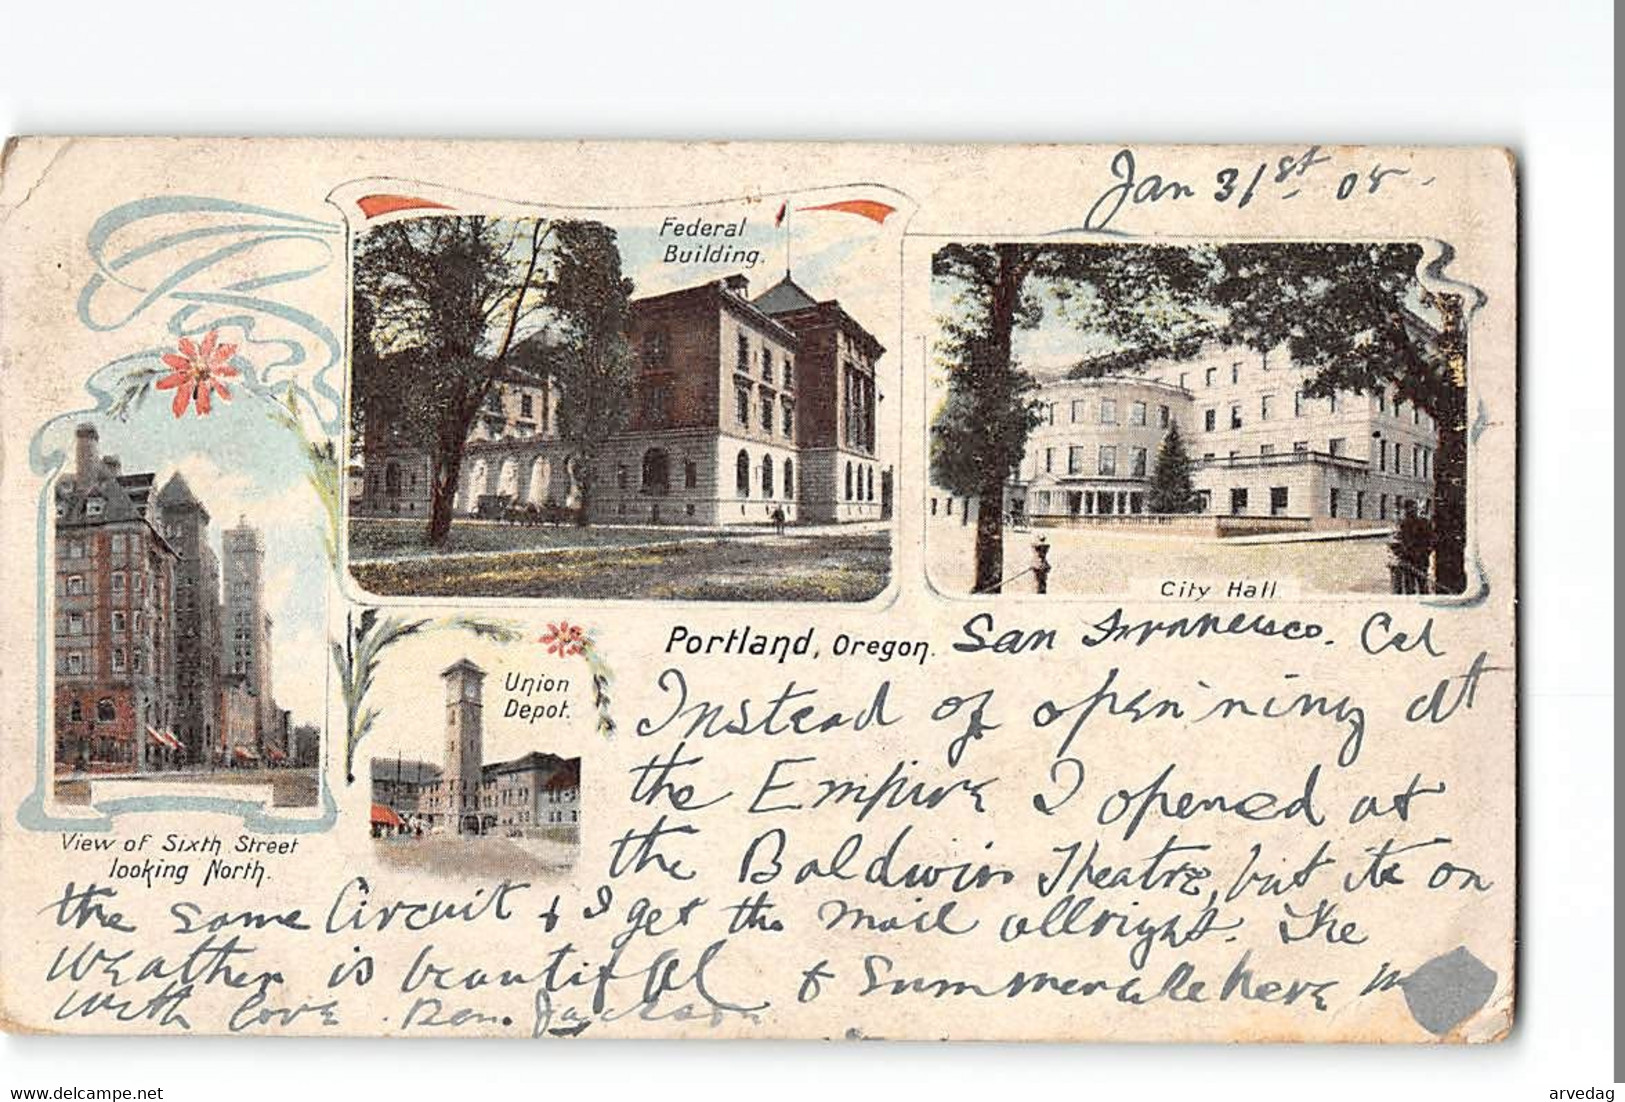 Jan 31st 05
Federal
Building.
City Hall
Portland, Oregon. San Francisco. Cal
Union
Depot.
View of Sixth Street
looking North.
Instead of open'ning at
the Empire I opened at
the Baldwin Theatre, but its on
the same Circuit & I get the mail allright. The
Weather is beautiful & Summer like here
With love. Ben. Jackson
delcampe.net
arvedag